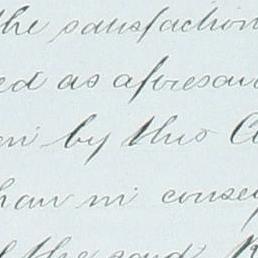 the satisfaction
ed as aforesaid
en by this C
than in conseq
the said R